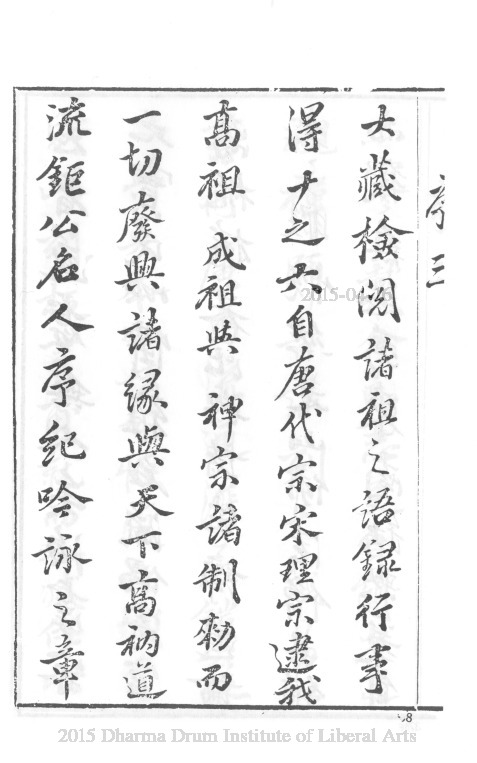 序三
大藏檢閱諸祖之語録行事
得十之六自唐代宗宋理宗逮我
髙祖 成祖與 神宗諸制勅而
一切廢興諸緣與天下髙衲道
流鉅公名人序紀吟詠之章
2015-04-
8
2015 Dharma Drum Institute of Liberal Arts